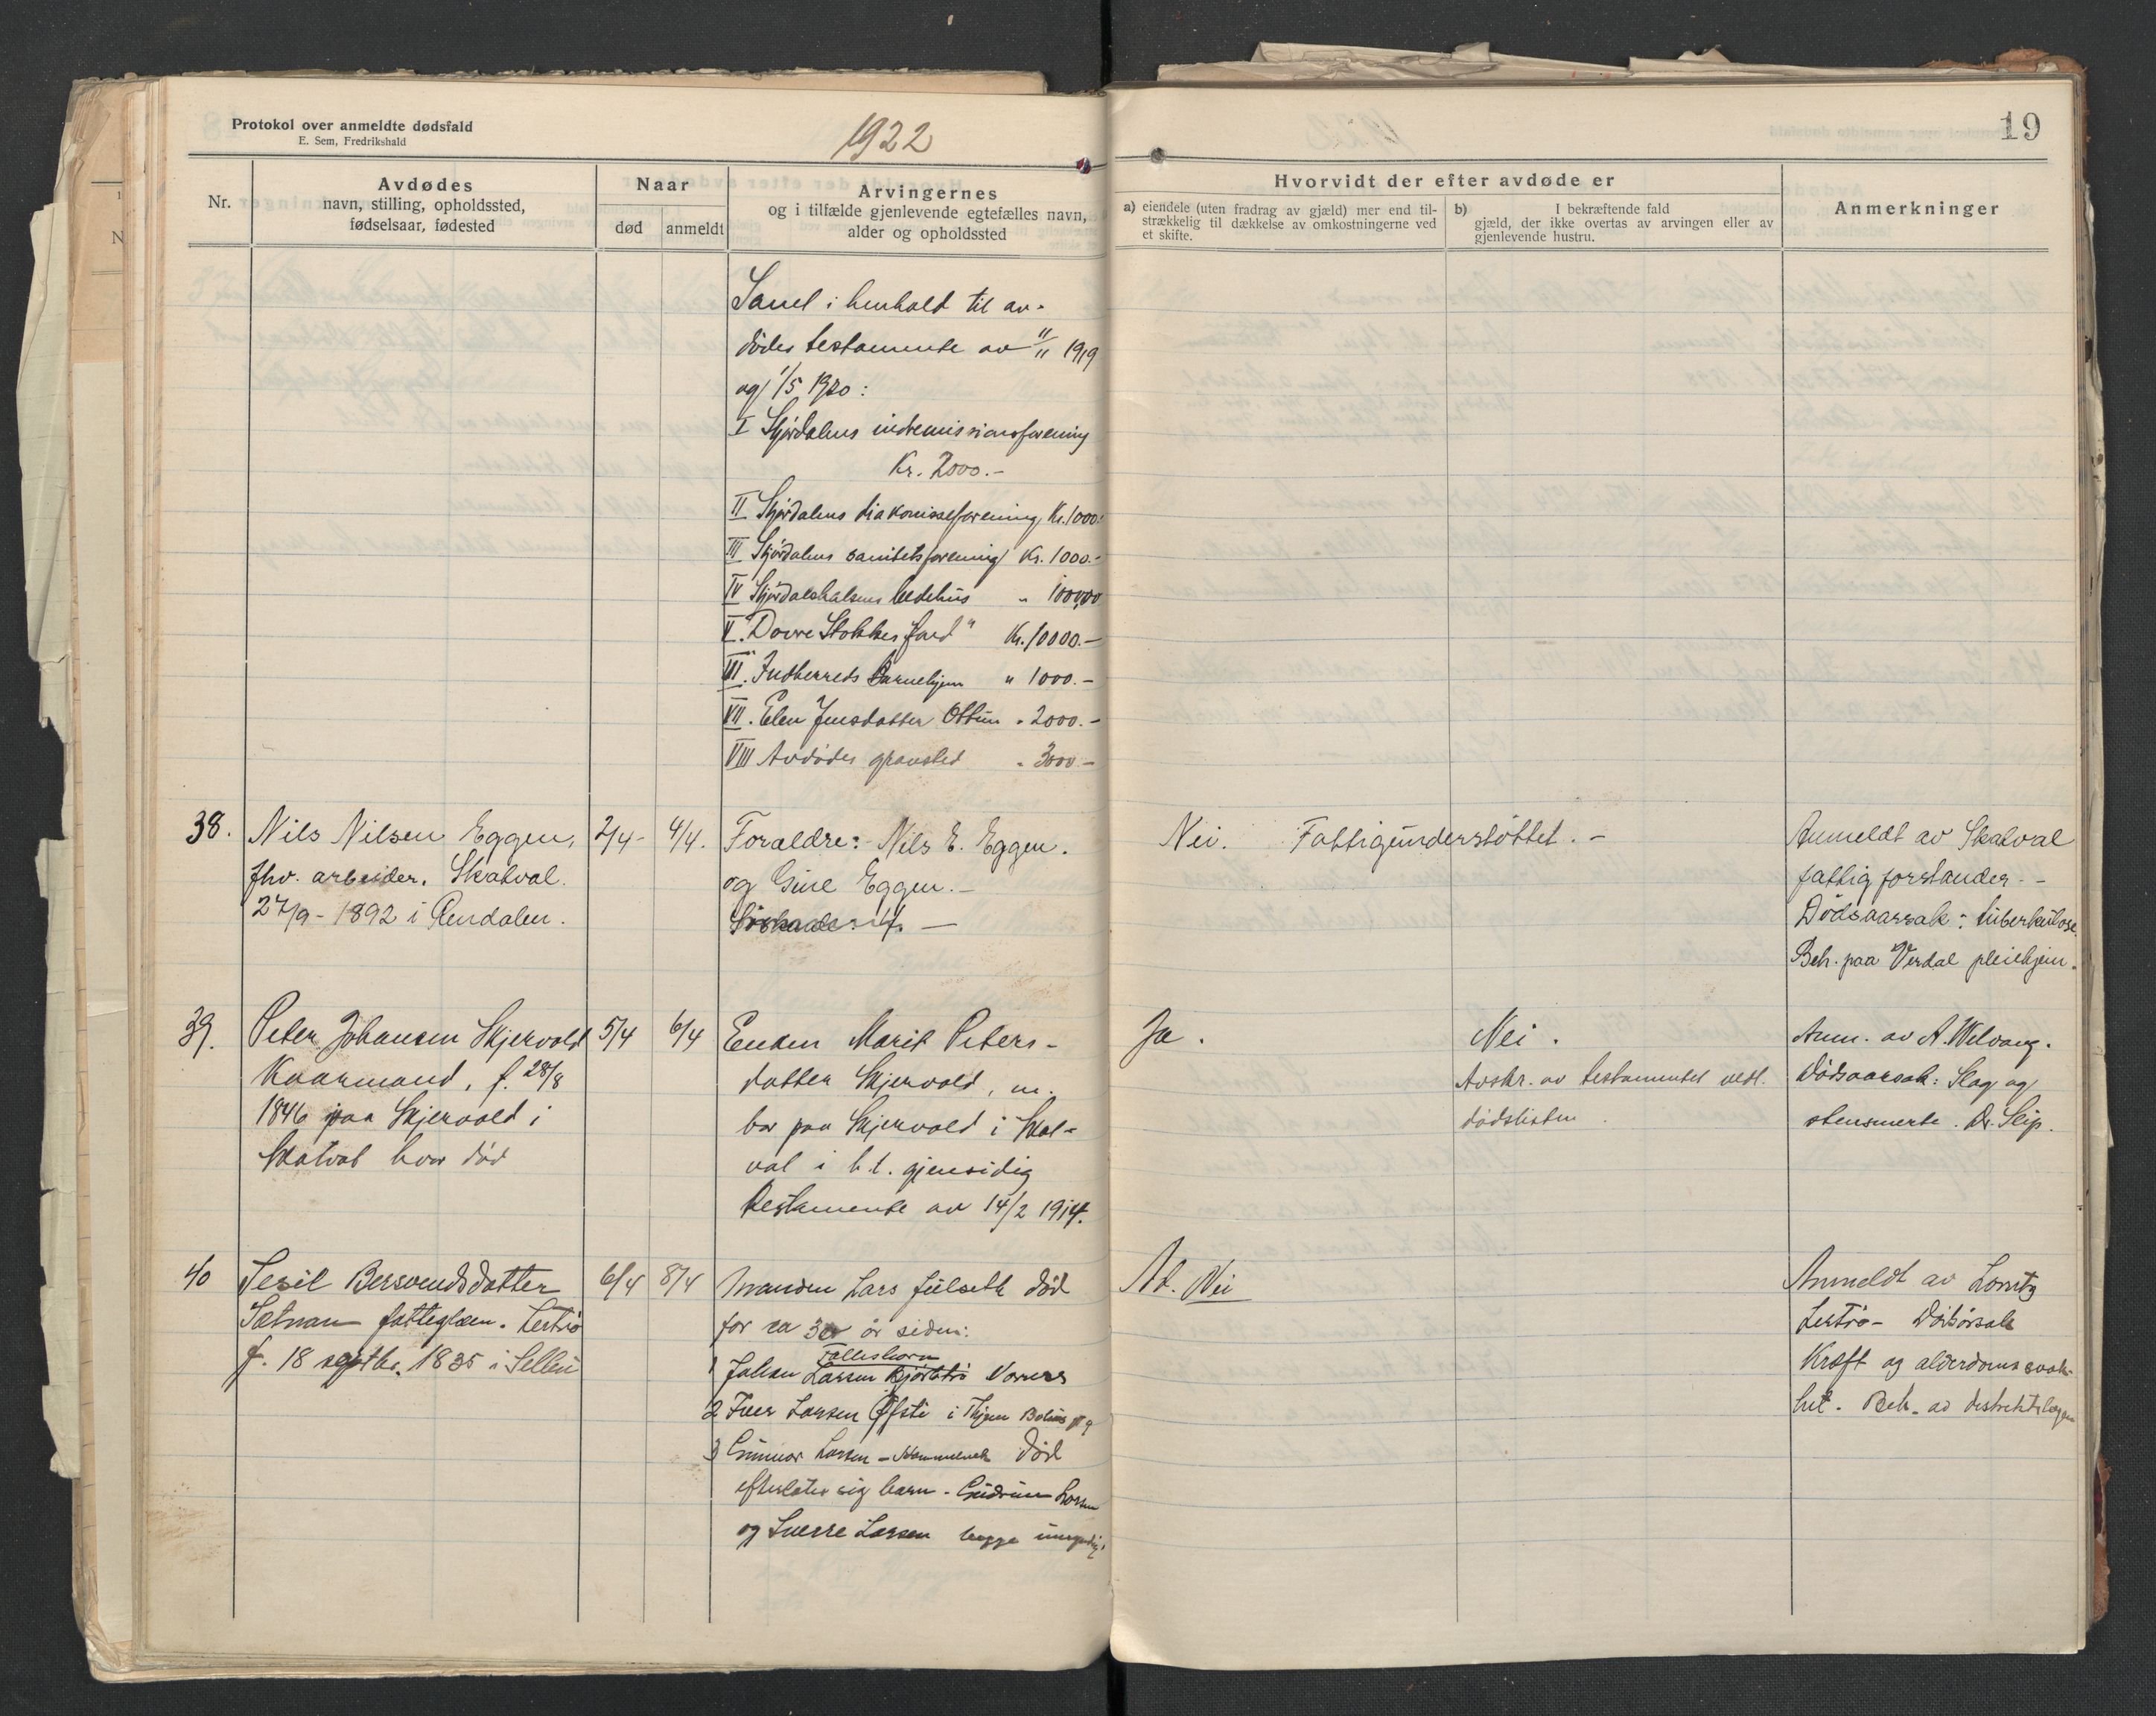 Protokol over anmeldte dødsfald
E. Sem, Fredrikshald
1922
Nr.
Avdødes
navn, stilling, opholdssted,
fødselsaar, fødested
Naar
død
anmeldt
Arvingernes
og i tilfælde gjenlevende egtefælles navn,
alder og opholdssted
Samt i henhold til av-
dødes testamente av 11/11 1919
og 1/5 1920:
I Stjørdalens indremissionsforening
Kr. 2000.-
II Stjørdalens diakonisseforening Kr. 1000.-
III Stjørdalens sanitetsforening Kr. 1000.-
IV Stjørdalshalsens bedehus " 1000,00
V. Dovre Stokkes fond" Kr. 10000.-
III. Indherreds Barnehjem " 1000.-
VII. Elen Jensdatter " 2000.-
VIII Avdødes gravsted " 3000.-
38.
Nils Nilsen Eggen,
fhv. arbeider. Skatval.
27/9 - 1892 i Rendalen.
2/4-
4/4.
Foraldre: Nils E. Eggen.
og Gine Eggen.-
39.
Peter Johansen Skjervold
Kaarmand, f. 28/8
1846 paa Skjervold i
Skatval hvor død
5/4
6/4
Enken Marit Peters-
datter Skjervold,
bor paa Skjervold i Skat-
val i h.t. gjensidig
testamente av 14/2 1914.
40
Seril Bersvendsdatter
Sætnan fattiglem.
f. 18 septbr. 1835 i Selbu
6/4
8/4
Manden Lars Julseth død
for ca 30 år siden:
1 Johan Larsen
2 Iver Larsen Øfsti i
3 Gunnar Larsen - død
efterlater sig barn - Gudrun Larsen
og Sverre Larsen begge umyndig.
19
Hvorvidt der efter avdøde er
a) eiendele (uten fradrag av gjæld) mer end til-
strækkelig til dækkelse av omkostningerne ved
et skifte.
b) I bekræftende fald
gjæld, der ikke overtas av arvingen eller av
gjenlevende hustru.
Anmerkninger
Nei. Fattigunderstöttet.-
Anmeldt av Skatval
fattigforstander.-
Dødsaarsak: tuberkulose.
Beh. paa Verdal pleiehjem.
Ja.
Nei.
Avskr. av testamentet vedl.
dødslisten
Anm. av A. Welvang.
Dødsaarsak: Slag og
stensmerte. Dr. Slip.
Ad. Nei
Anmeldt av Lorntz
Leirtrø- Dødsårsak
Kræft og alderdomssvak-
het. Beh. av distriktslægen